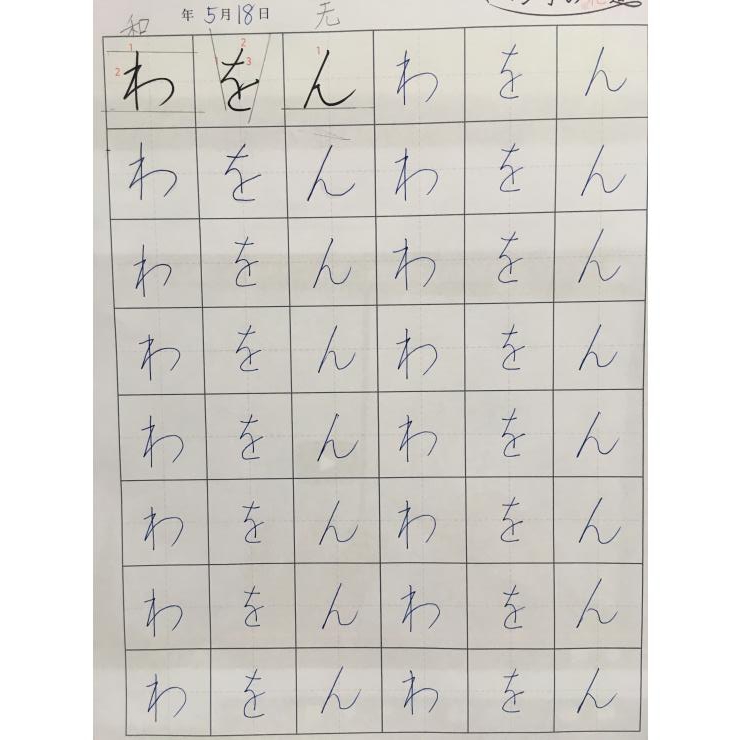 和 年 5月18日 无
1 2 わ 1 2 3 を 1 ん わ を ん
わ を ん わ を ん
わ を ん わ を ん
わ を ん わ を ん
わ を ん わ を ん
わ を ん わ を ん
わ を ん わ を ん
わ を ん わ を ん